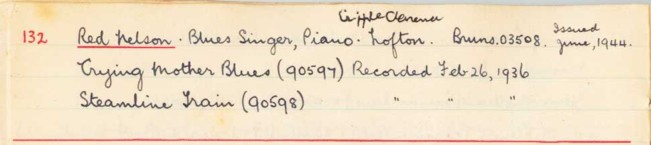 Cripple Clarence
132 Red Nelson · Blues Singer, Piano · Lofton. Bruns. 03508. Issued June, 1944.
Crying Mother Blues (90597) Recorded Feb 26, 1936
Steamline Train (90598) " " "